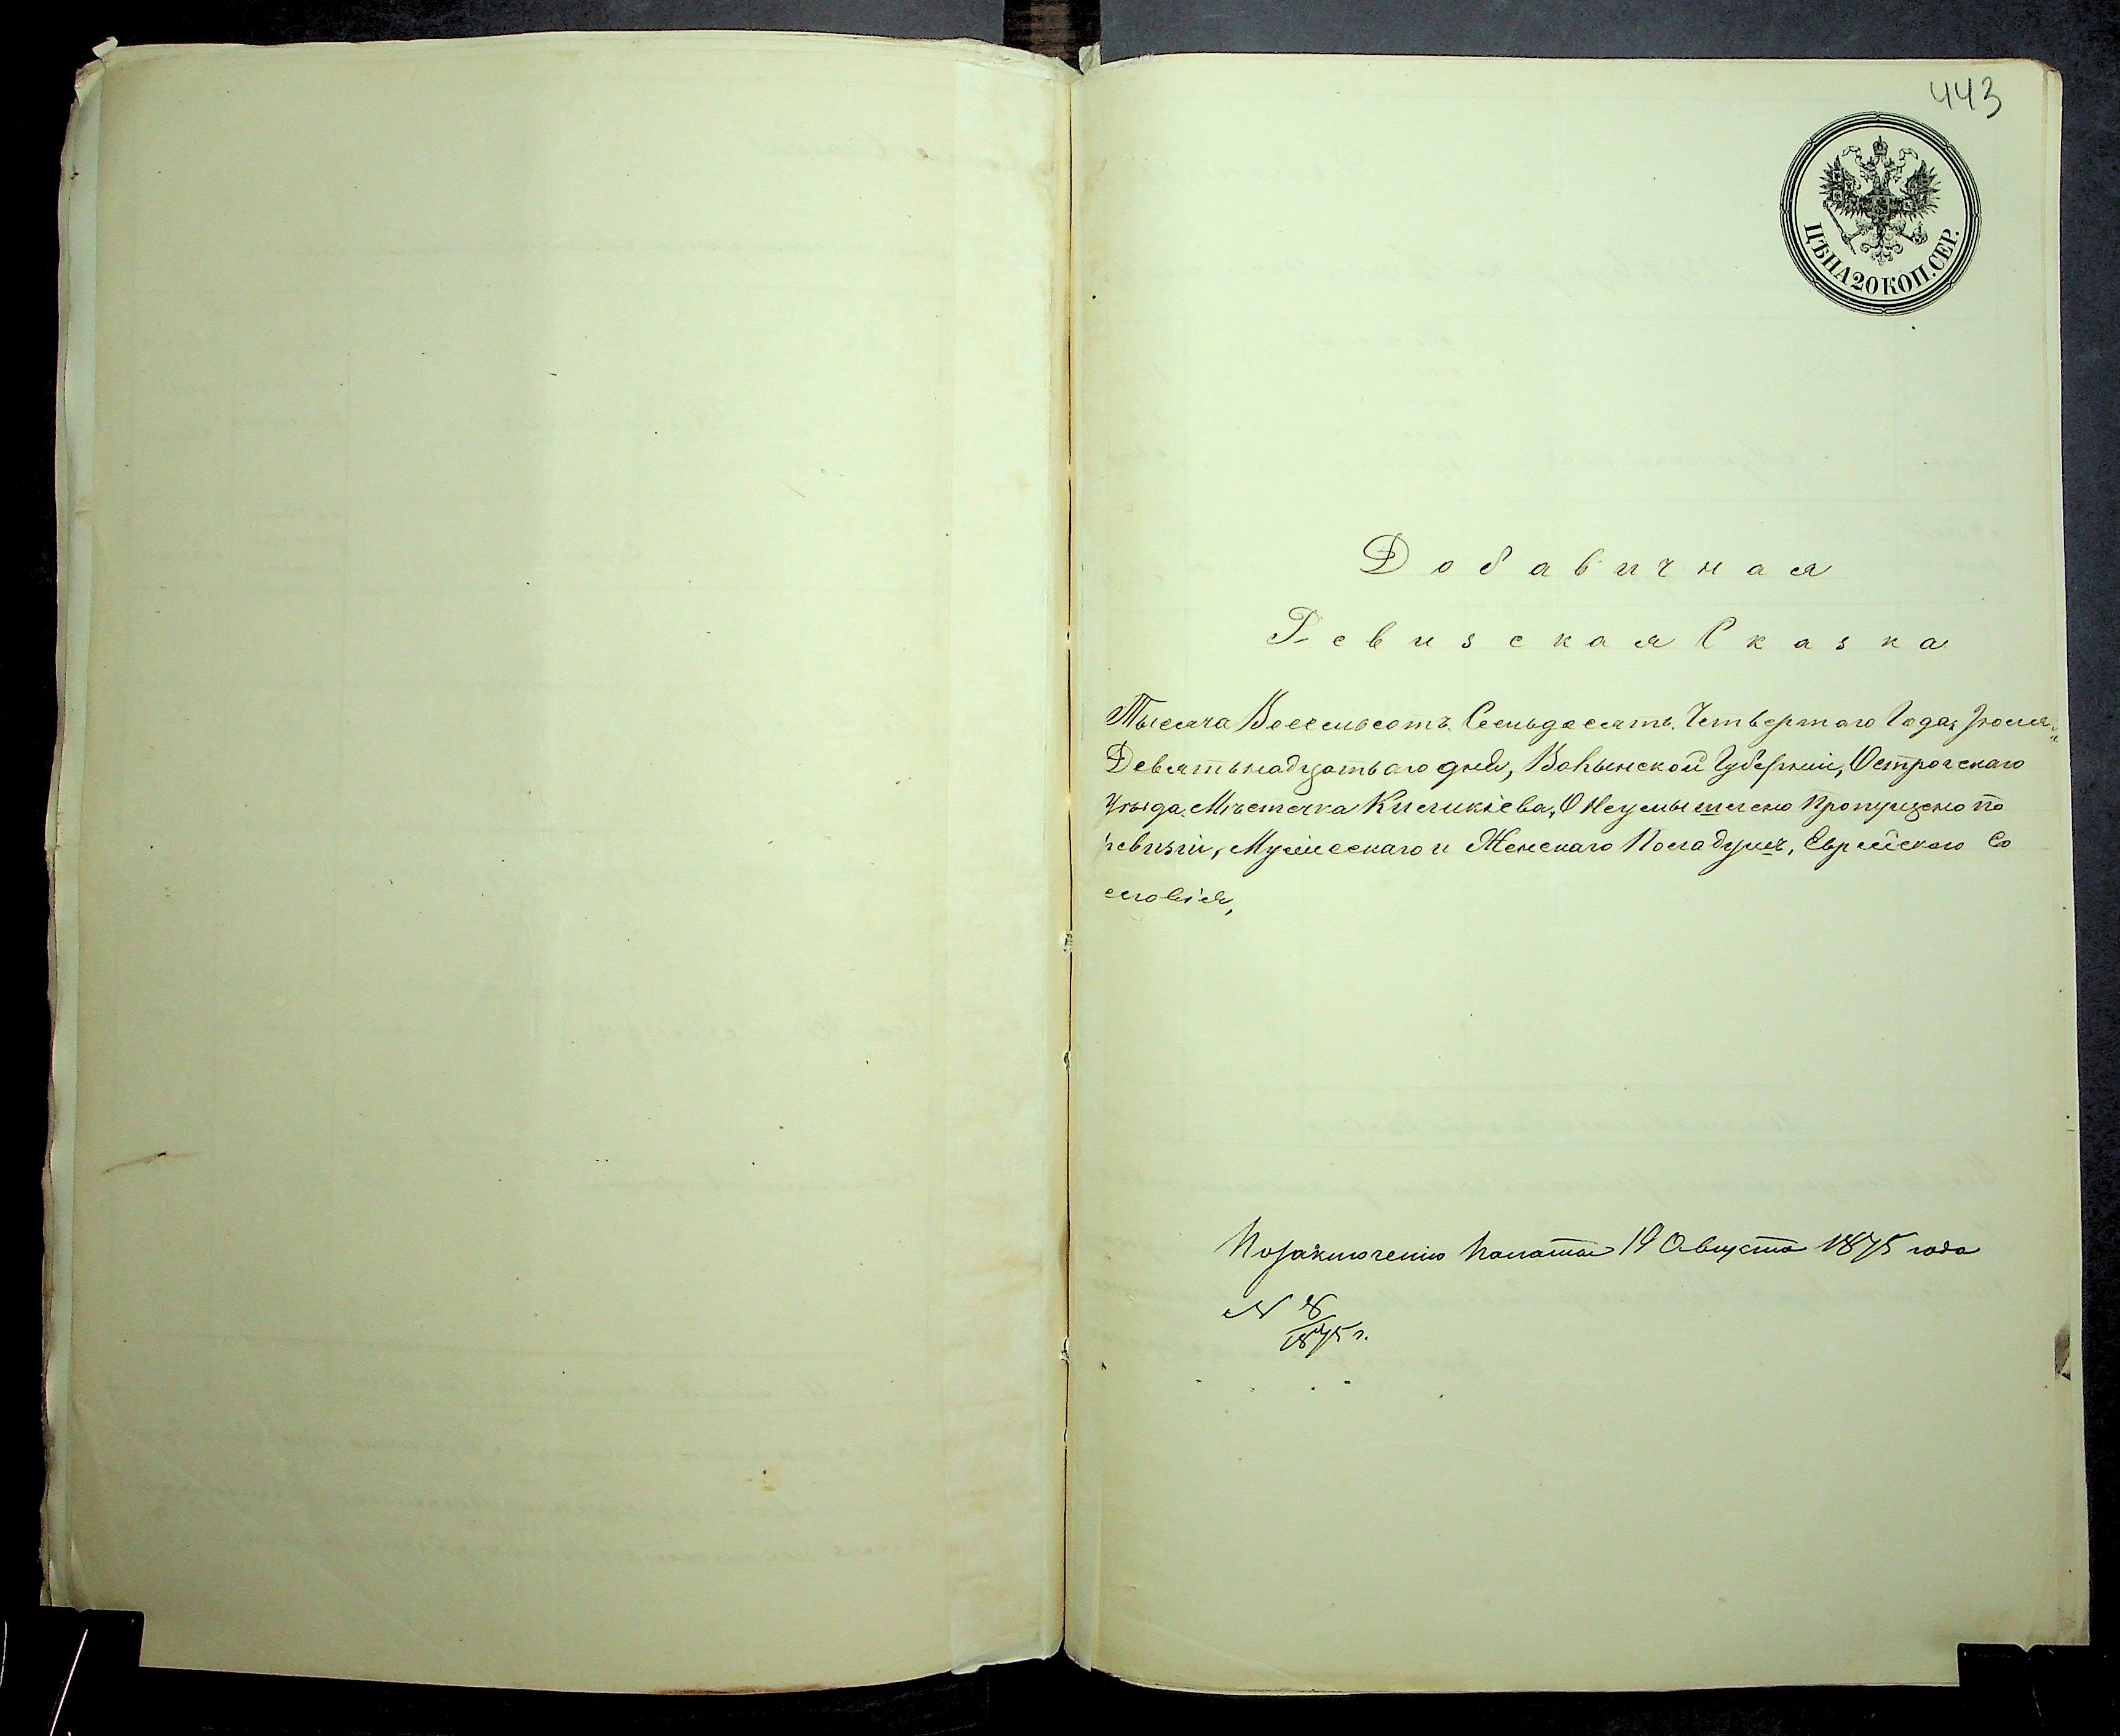 443
ЦѢНА 20 КОП. СЕР.
Добавичная
Ревизская Сказка
Тысяча Восемьсотъ Семьдесятъ Четвертаго Года,
Девятьнадцатьаго дня, Волынской Губерніи, Острогскаго
Уѣзда Мѣстечка Киликіева, О Неумышлено Пропущено по
ревизіи, Мужескаго и Женскаго Пола душъ, Еврейскаго Со
словія,
По заключенію Палаты 19 Августа 1875 года
N 8/1875 г.